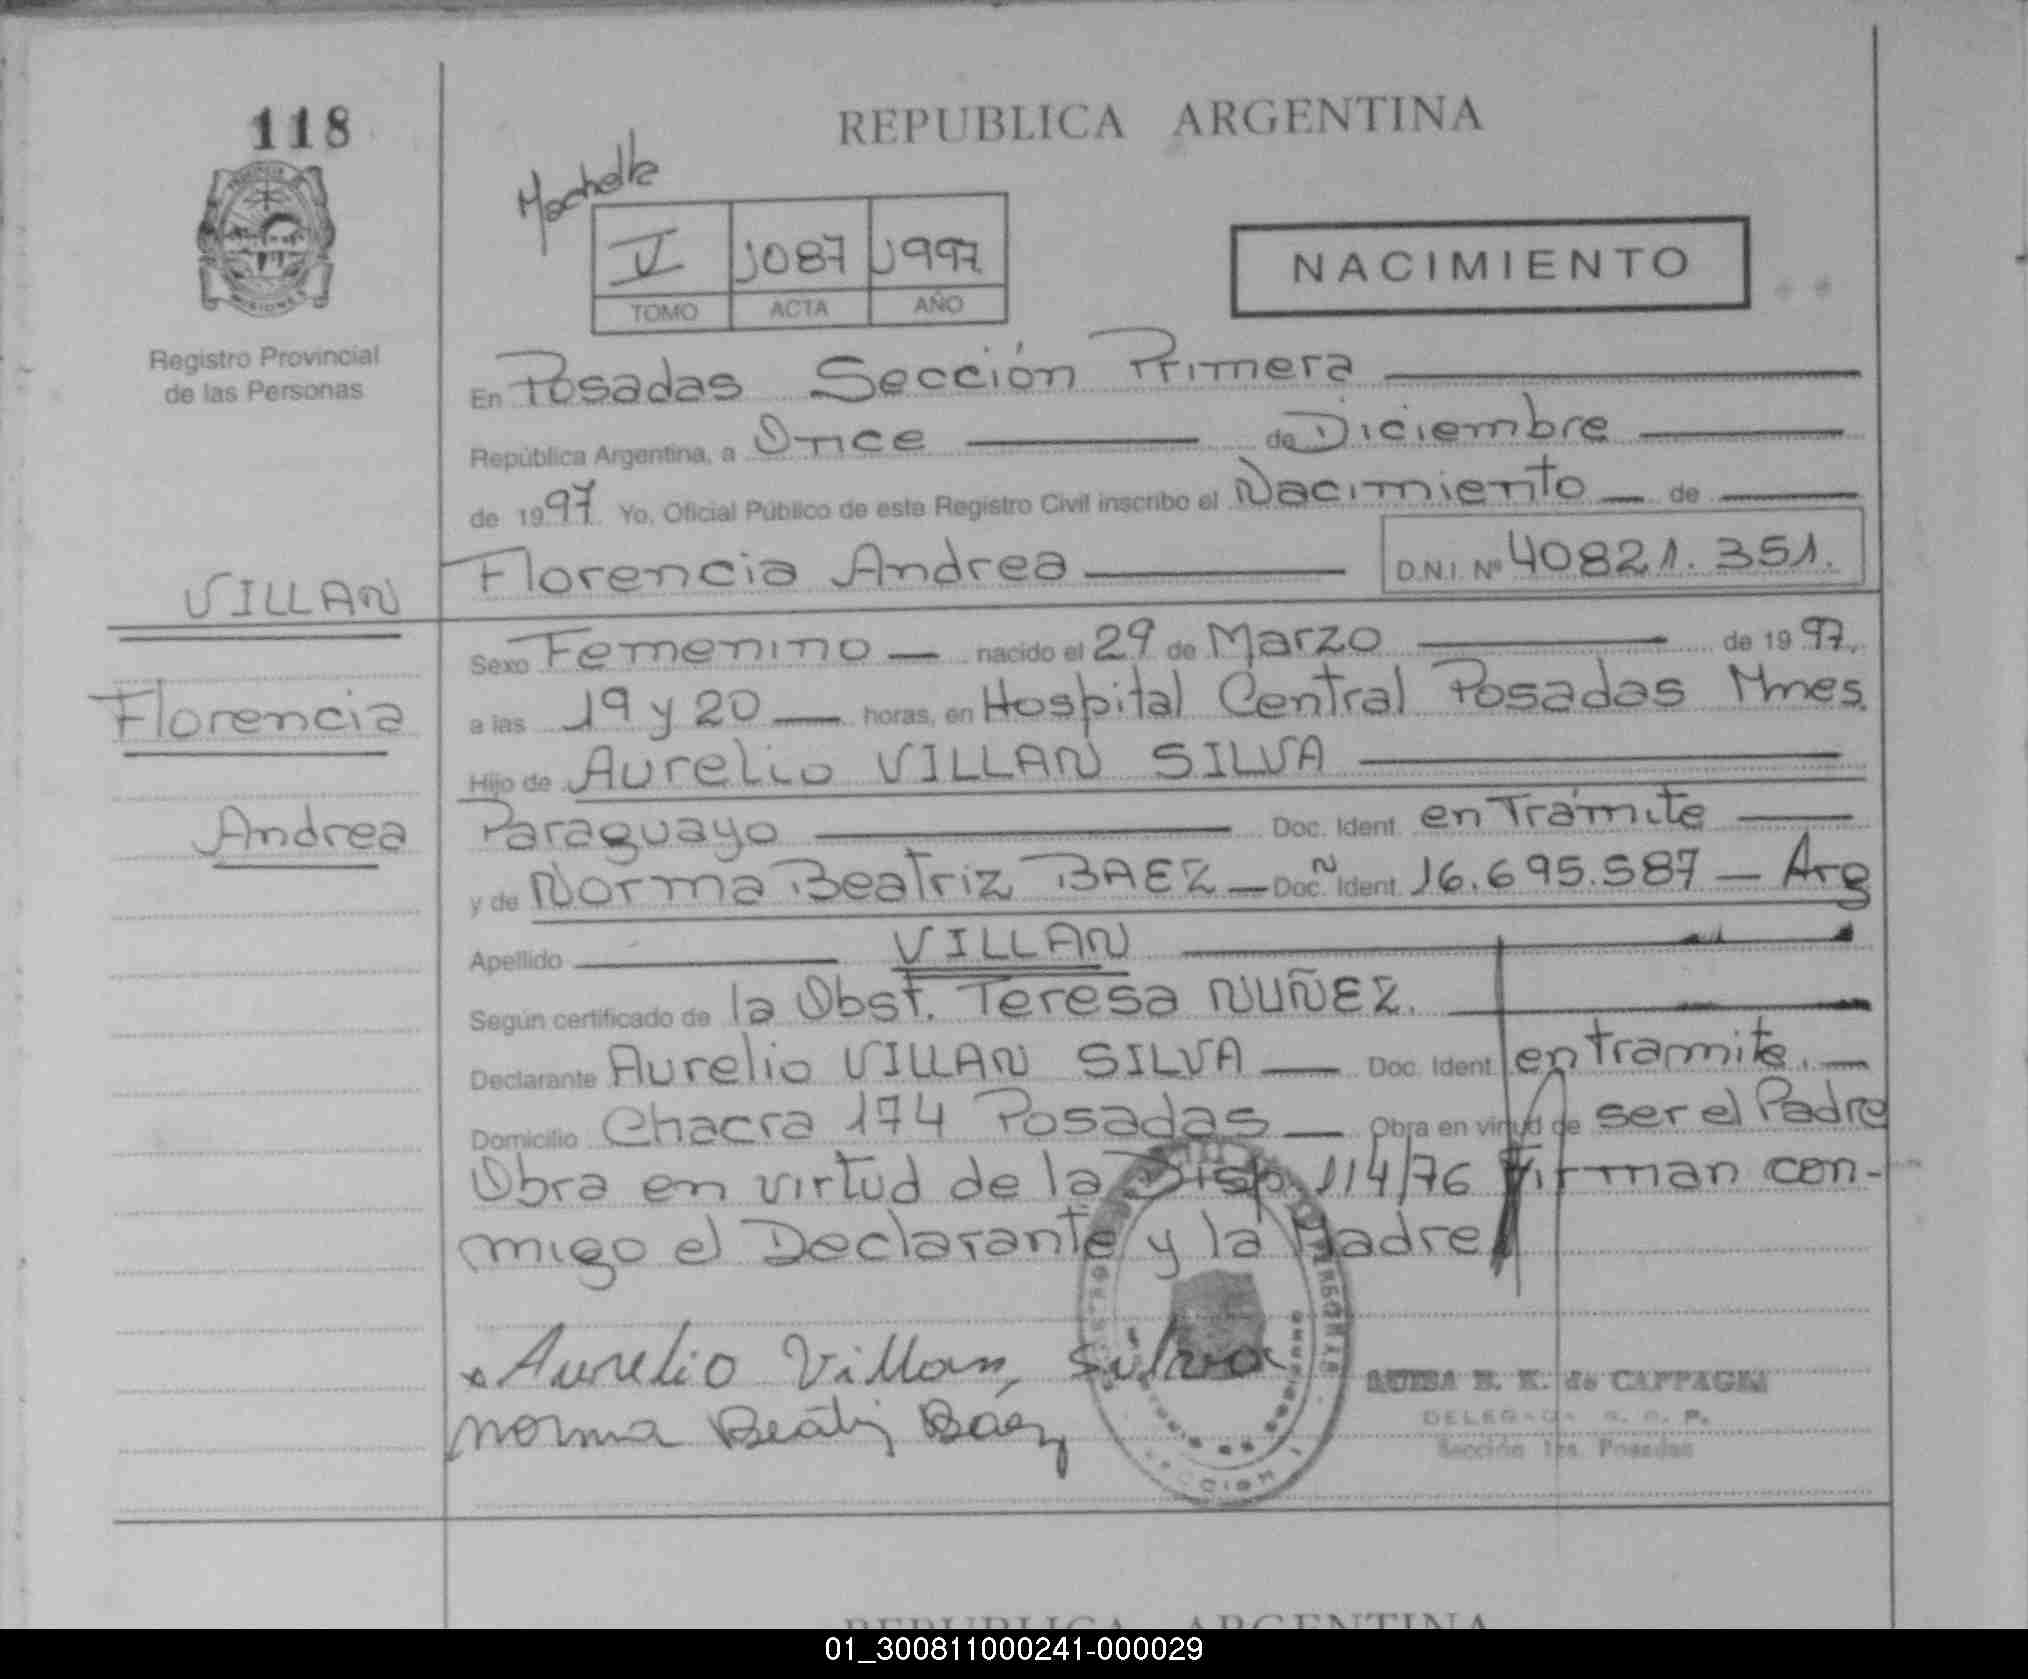 118
REPUBLICA ARGENTINA
V 1087 1997
TOMO ACTA AÑO
NACIMIENTO
Registro Provincial
de las Personas
En Posadas Sección Primera
República Argentina, a Once de Diciembre
de 1997 Yo, Oficial Público de este Registro Civil inscribo el Nacimiento de
VILLAN
Florencia Andrea D.N.I. Nº 40821.351.
Sexo Femenino nacido el 29 de Marzo de 1997.
Florencia
a las 19 y 20 horas, en Hospital Central Posadas Mnes.
Hijo de Aurelio VILLAN SILVA
Andrea
Paraguayo Doc. Ident. en Trámite
y de Norma Beatriz BAEZ Doc. Ident. 16.695.587 - Arg
Apellido VILLAN
Según certificado de la Obst. Teresa NUÑEZ.
Declarante Aurelio VILLAN SILVA Doc. Ident. en tramite.
Domicilio Chacra 174 Posadas Obra en virtud de ser el Padre
Obra en virtud de la Disp. 114/76 Firman con-
migo el Declarante y la Madre
Aurelio Villan, Silva
Norma Beatriz Báez
DELEGADA R. C. P.
Sección 1ra. Posadas
REPUBLICA ARGENTINA
01_300811000241-000029